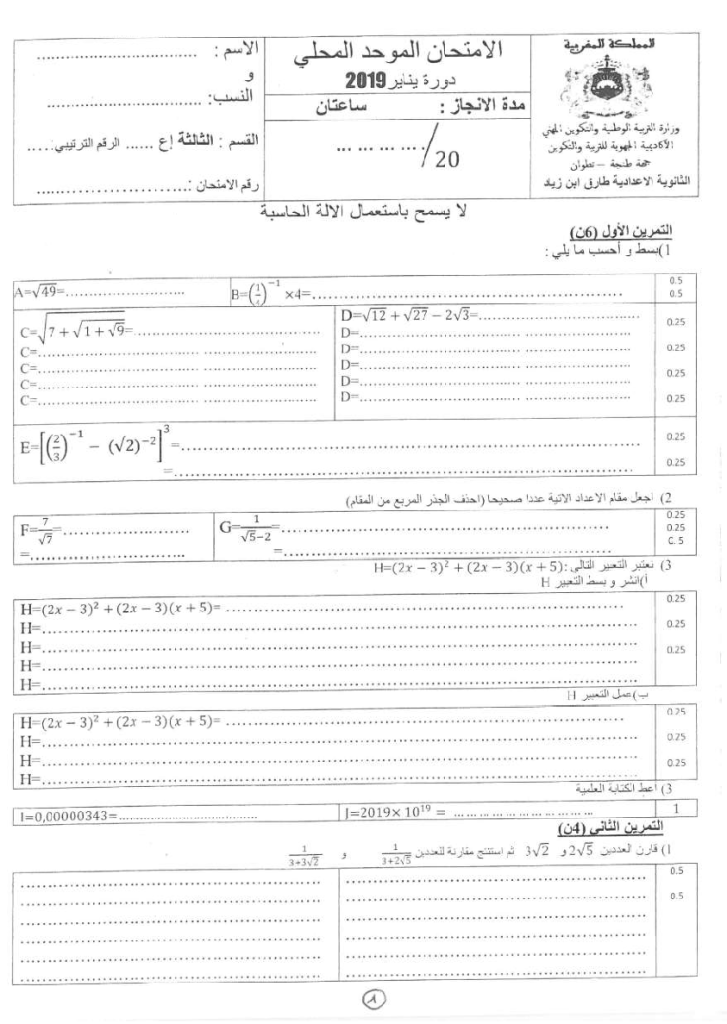 المملكة المغربية
وزارة التربية الوطنية والتكوين المهني
الأكاديمية الجهوية للتربية والتكوين
جهة طنجة – تطوان
الثانوية الاعدادية طارق ابن زياد
الامتحان الموحد المحلي
دورة يناير 2019
مدة الانجاز : ساعتان
... ... ... ../20
الاسم : ................................
و
النسب: ................................
القسم : الثالثة إع ...... الرقم الترتيبي:.....
رقم الامتحان :............................
لا يسمح باستعمال الالة الحاسبة
التمرين الأول (6ن)
1)بسط و أحسب ما يلي :
A=√49=..........................
B=( )⁻¹ ×4=................................................................
0.5
0.5
C=√(7 + √(1 + √9))=........................................
C=............................................................
C=............................................................
C=............................................................
C=............................................................
D=√12 + √27 − 2√3=..................................
D=............................................................
D=............................................................
D=............................................................
D=............................................................
0.25
0.25
0.25
0.25
E=[(2/3)⁻¹ − (√2)⁻²]³=................................................................
=................................................................
0.25
0.25
2) اجعل مقام الاعداد الاتية عددا صحيحا (احذف الجذر المربع من المقام)
F=7/√7=..........................
=................................
G=1/(√5−2)=................................................................
=................................................................
0.25
0.25
C.5
3) نعتبر التعبير التالي :H=(2x − 3)² + (2x − 3)(x + 5)
أ)انشر و بسط التعبير H
H=(2x − 3)² + (2x − 3)(x + 5)= ................................................................
H=................................................................
H=................................................................
H=................................................................
H=................................................................
0.25
0.25
0.25
ب)عمل التعبير H
H=(2x − 3)² + (2x − 3)(x + 5)= ................................................................
H=................................................................
H=................................................................
H=................................................................
0.25
0.25
0.25
3) اعط الكتابة العلمية
I=0,00000343=..................................
J=2019× 10¹⁹ = ... ... ... ... ... ... ... ... ... ...
1
التمرين الثاني (4ن)
1) قارن العددين 2√5 و 3√2 ثم استنتج مقارنة للعددين 1/(3+2√5) و 1/(3+3√2)
0.5
0.5